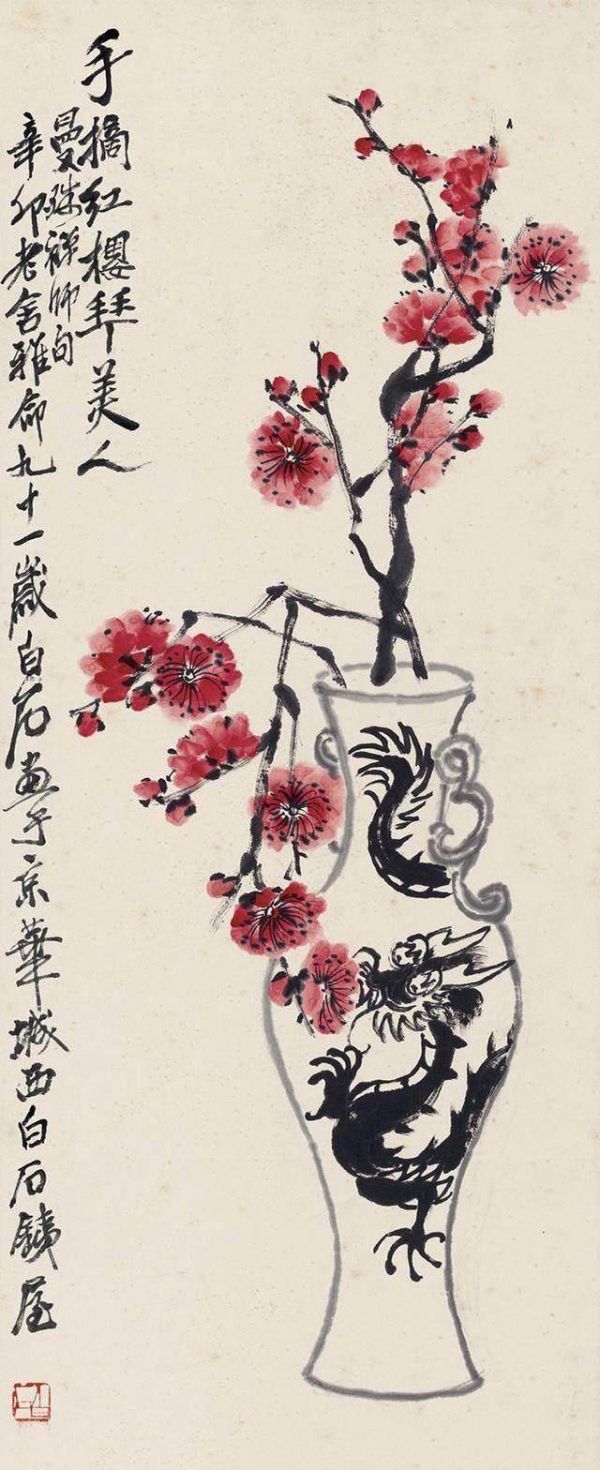 手摘紅櫻拜美人
曼殊禪師句
辛卯老舍雅命九十一歲白石畫于京華城西白石鐵屋